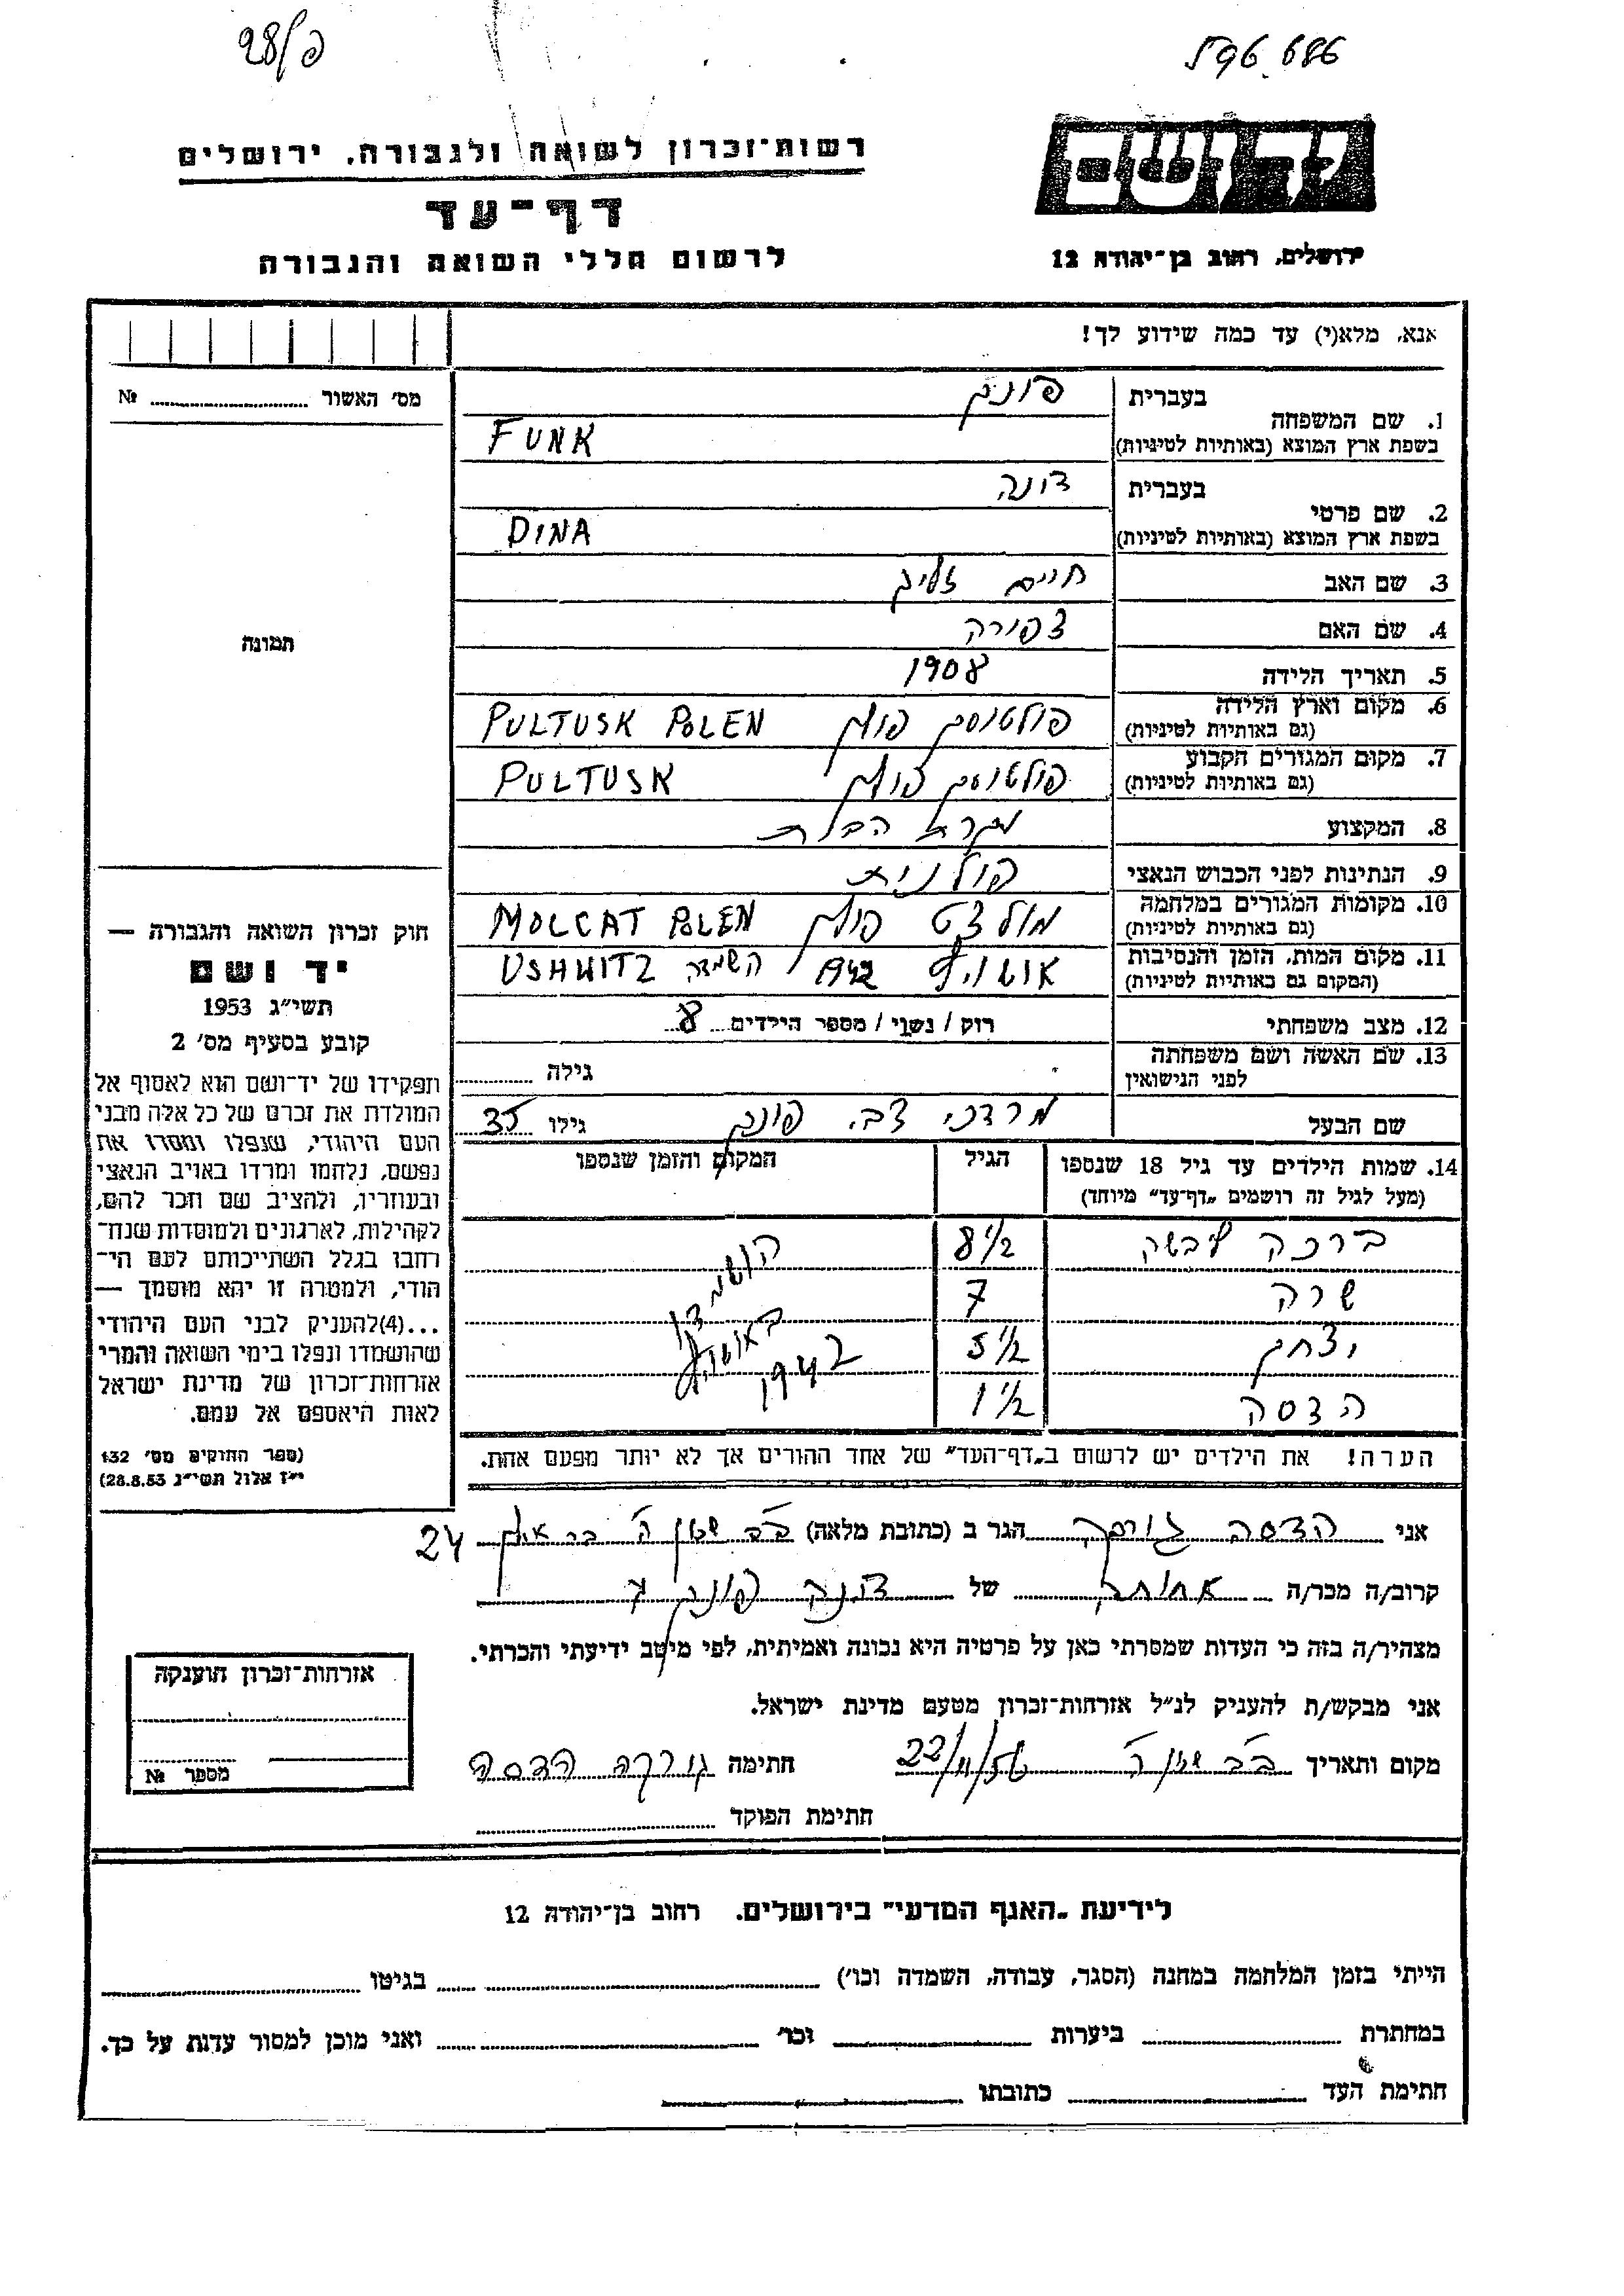 פ/98
596.686
רשות־זכרון לשואה ולגבורה, ירושלים
דף־עד
לרשום חללי השואה והגבורה
יד ושם
ירושלים, רחוב בן־יהודה 12
אנא, מלא(י) עד כמה שידוע לך!
מס׳ האשור № ........
תמונה
1. שם המשפחה בעברית פונק
בשפת ארץ המוצא (באותיות לטיניות) FUNK
2. שם פרטי בעברית דינה
בשפת ארץ המוצא (באותיות לטיניות) DINA
3. שם האב חיים זליג
4. שם האם צפורה
5. תאריך הלידה 1908
6. מקום וארץ הלידה (גם באותיות לטיניות) פולטוסק פולין PULTUSK POLEN
7. מקום המגורים הקבוע (גם באותיות לטיניות) פולטוסק פולין PULTUSK
8. המקצוע עקרת הבית
9. הנתינות לפני הכבוש הנאצי פולנית
10. מקומות המגורים במלחמה (גם באותיות לטיניות) מולצט פולין MOLCAT POLEN
11. מקום המות, הזמן והנסיבות (המקום גם באותיות לטיניות) 1942 השמדה USHWITZ
12. מצב משפחתי רוק / נשוי / מספר הילדים 8
13. שם האשה ושם משפחתה לפני הנישואין גילה ........
שם הבעל מרדכי צבי פונק גילו 35
14. שמות הילדים עד גיל 18 שנספו הגיל המקום והזמן שנספו
(מעל לגיל זה רושמים „דף־עד״ מיוחד)
ברכה 8 1/2
שרה 7
יצחק 5 1/2
הדסה 1 1/2
הושמדו
באושויץ
1942
הערה! את הילדים יש לרשום ב„דף־העד״ של אחד ההורים אך לא יותר מפעם אחת.
חוק זכרון השואה והגבורה —
יד ושם
תשי״ג 1953
קובע בסעיף מס׳ 2
ותפקידו של יד־ושם הוא לאסוף אל
המולדת את זכרם של כל אלה מבני
העם היהודי, שנפלו ומסרו את
נפשם, נלחמו ומרדו באויב הנאצי
ובעוזריו, ולהציב שם וזכר להם,
לקהילות, לארגונים ולמוסדות שנח־
רחבו בגלל השתייכותם לעם הי־
הודי, ולמטרה זו יהא מוסמך —
...(4)להעניק לבני העם היהודי
שהושמדו ונפלו בימי השואה והמרי
אזרחות־זכרון של מדינת ישראל
לאות היאספם אל עמם.
(ספר החוקים מס׳ 132
י״ז אלול תשי״ג 28.8.53)
אני הדסה גורקה הגר ב (כתובת מלאה) 24
קרוב/ה מכר/ה אחותה של דינה פונק
מצהיר/ה בזה כי העדות שמסרתי כאן על פרטיה היא נכונה ואמיתית, לפי מיטב ידיעתי והכרתי.
אני מבקש/ת להעניק לנ״ל אזרחות־זכרון מטעם מדינת ישראל.
מקום ותאריך 22/11/56 חתימה גורקה הדסה
חתימת הפוקד ........
אזרחות־זכרון הוענקה
מספר №
לידיעת „האגף המדעי״ בירושלים, רחוב בן־יהודה 12
הייתי בזמן המלחמה במחנה (הסגר, עבודה, השמדה וכו׳) ........ בגיטו ........
במחתרת ........ ביערות ........ וכו׳ ........ ואני מוכן למסור עדות על כך.
חתימת העד ........ כתובתו ........